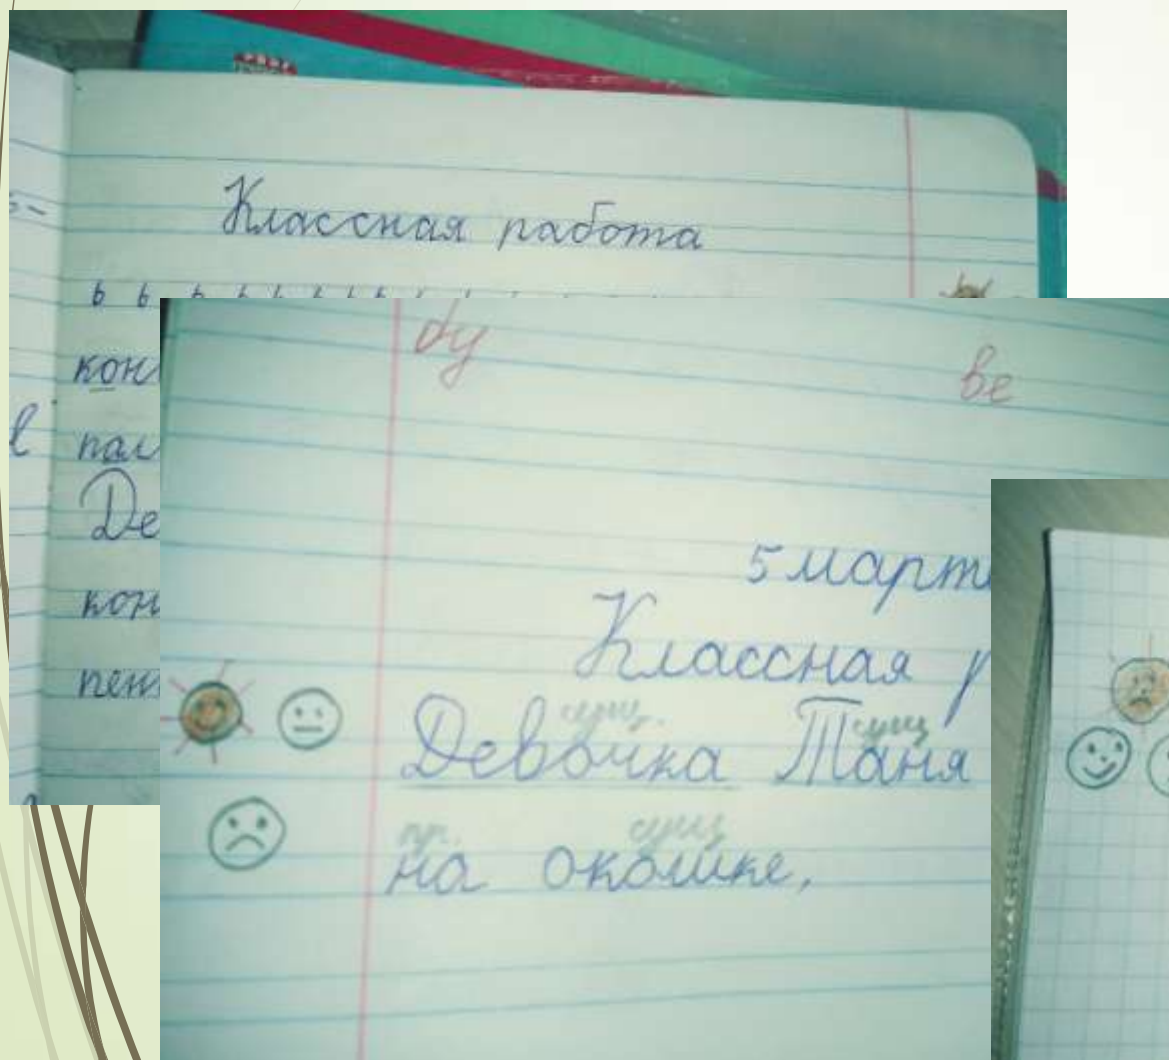 Классная работа
ь ь ь ь ь ь ь ь ь ь
кон
пал
Де
кон
пен
ву ве
5 марта
Классная р
сущ. сущ
Девочка Таня
пр. сущ
на окошке,